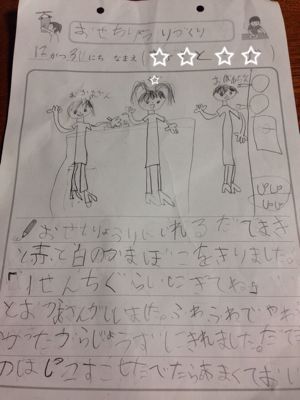 おせちりょうりづくり
12がつ31にち なまえ( と )
おかあさん
おにいちゃん
ぴぴ
ぴぴ
おせちりょうりにいれるだてまき
と赤と白のかまぼこをきりました。
「1せんちぐらいにきってね」
とおかあさんがいいました。ふわふわでやわら
かったからじょうずにきれました。だて
のはじっこすこしたべたらあまくておい